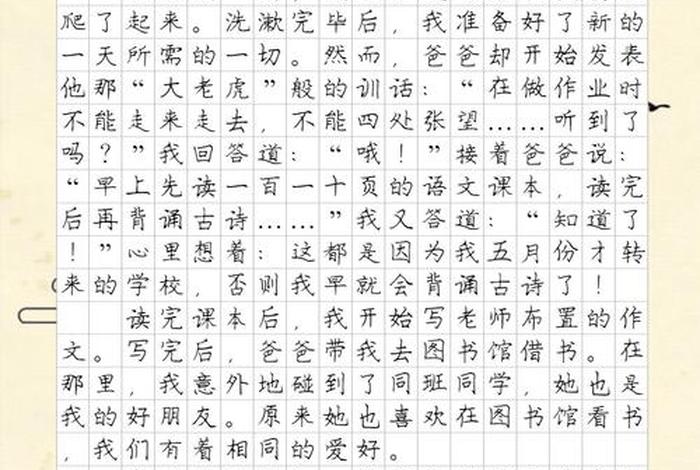 爬了起来。洗漱完毕后，我准备好了新的
一天所需的一切。然而，爸爸却开始发表
他那“大老虎”般的训话：“在做作业时
不能走来走去，不能四处张望……听到了
吗？”我回答道：“哦！”接着爸爸说：
“早上先读一百一十页的语文课本，读完
后再背诵古诗……”我又答道：“知道了
！”心里想着：这都是因为我五月份才转
来的学校，否则我早就会背诵古诗了！
读完课本后，我开始写老师布置的作
文。写完后，爸爸带我去图书馆借书。在
那里，我意外地碰到了同班同学，她也是
我的好朋友。原来她也喜欢在图书馆看书
，我们有着相同的爱好。